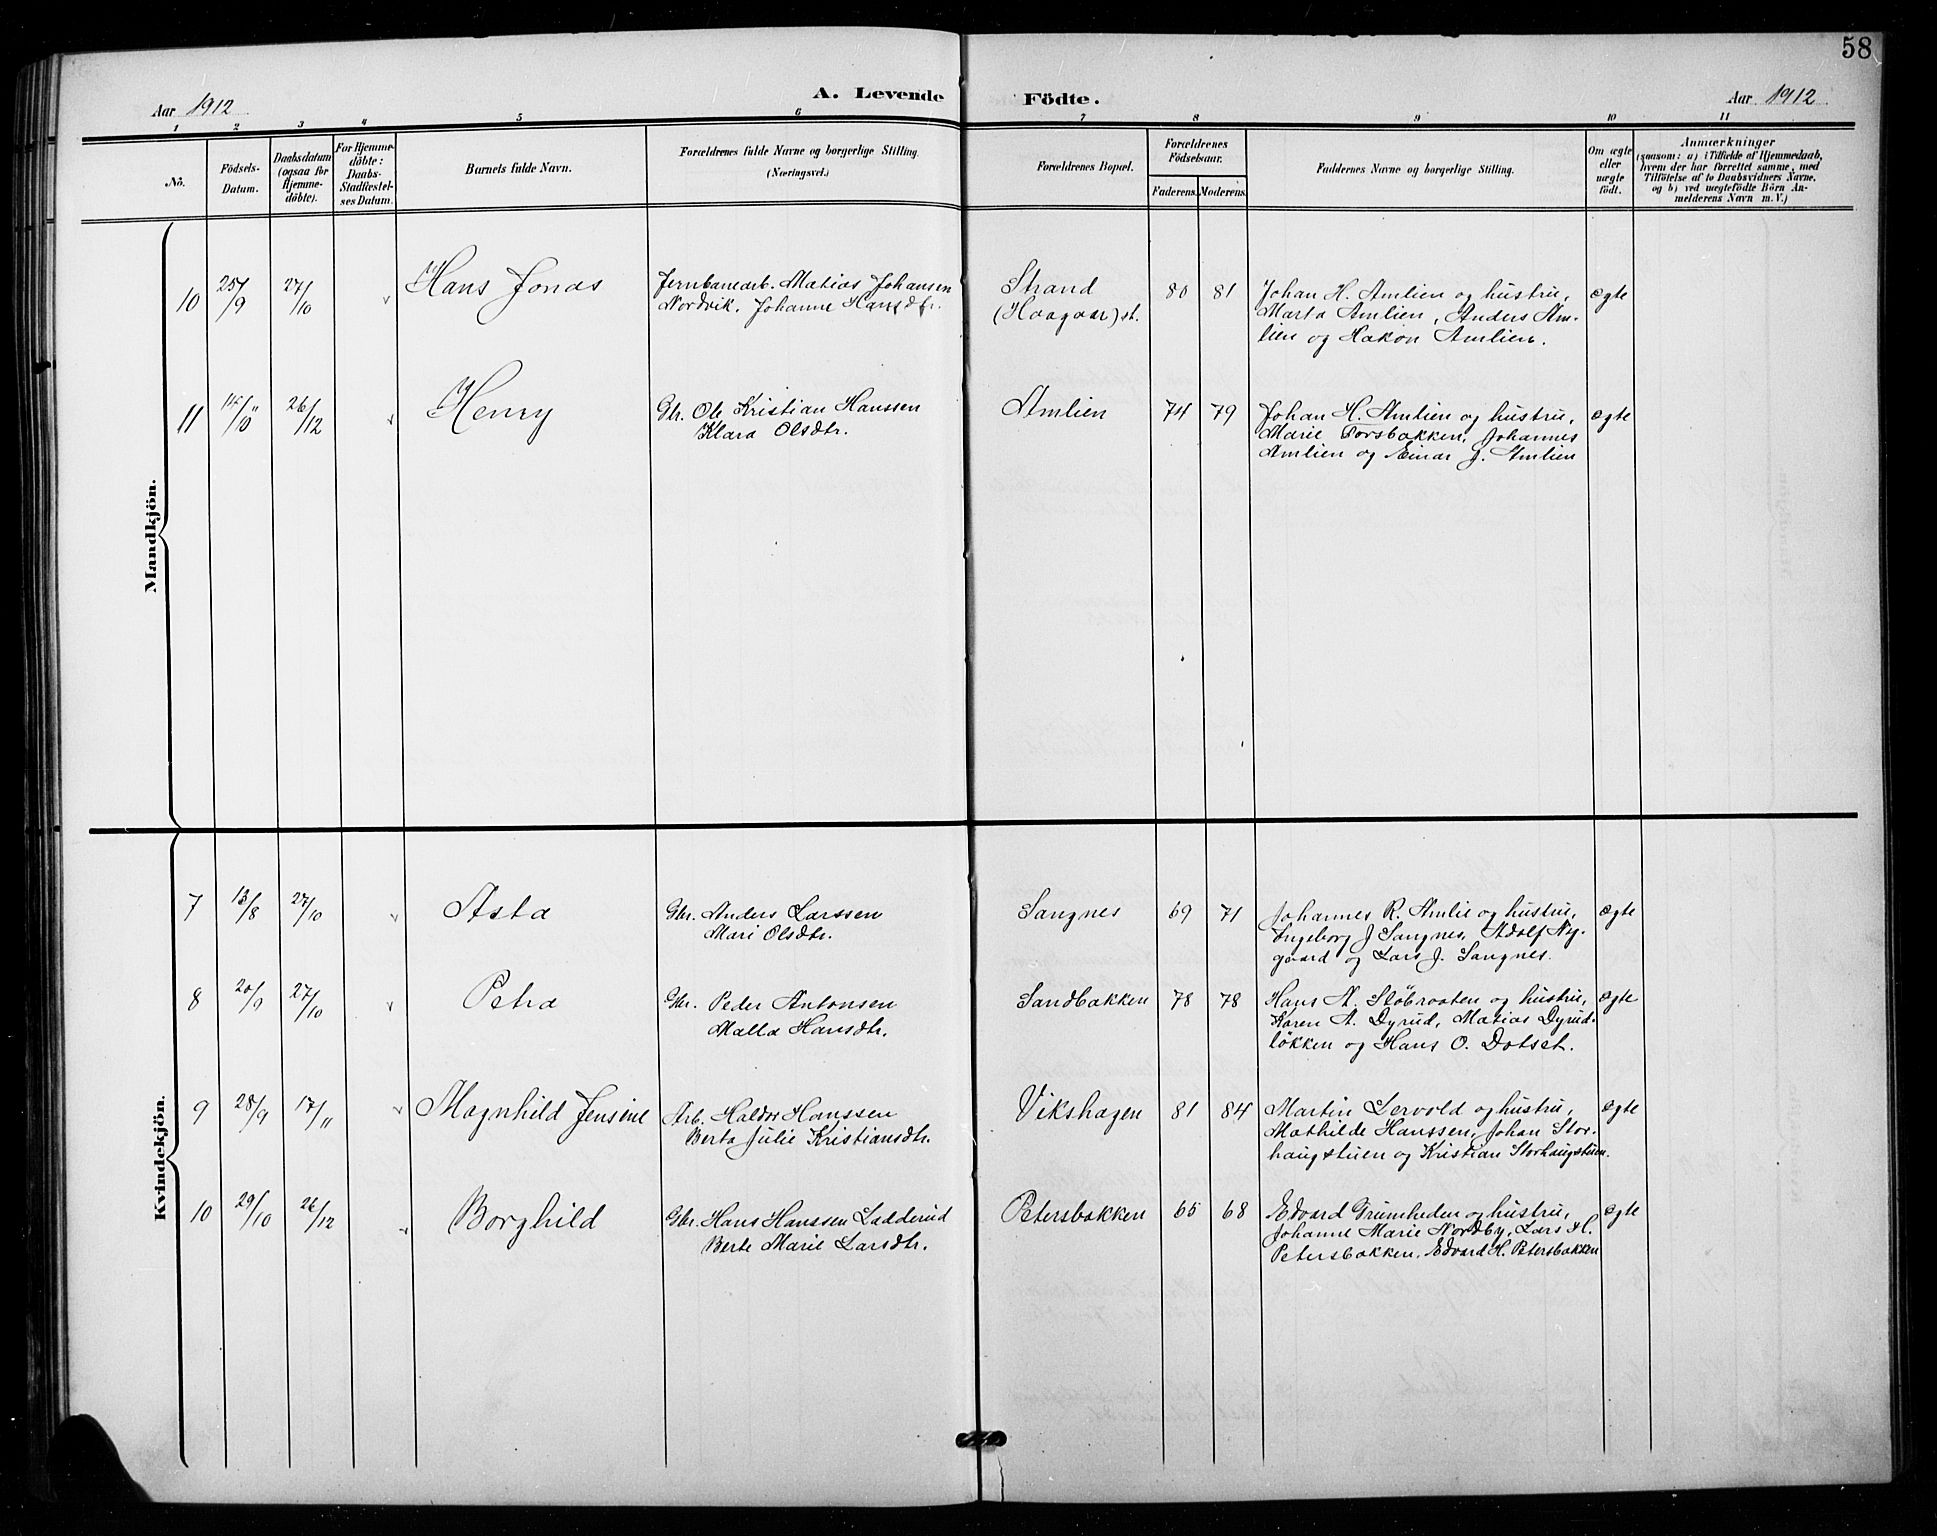 58
Aar 1912. A. Levende Födte. Aar 1912.
1 2 3 4 5 6 7 8 9 10 11
No. Födsels-Datum. Daabsdatum (ogsaa for Hjemme-döbte). For Hjemme-döbte: Daabs-Stadfæstel-ses Datum. Barnets fulde Navn. Forældrenes fulde Navne og borgerlige Stilling. (Næringsvei.) Forældrenes Bopæl. Forældrenes Födselsaar. Faderens. Moderens. Faddernes Navne og borgerlige Stilling. Om ægte eller uægte født. Anmærkninger (saasom: a) i Tilfælde af Hjemmedaab, hvem der har forrettet samme, med Tilföielse af to Daabsvidners Navne, og b) ved uægtefödte Börn An-melderens Navn m. V.)
Mandkjön.
10 25/9 27/10 Hans Jonas Jernbanearb. Matias Johansen Strand 80 81 Johan H. Amlien og hustru, ægte
Nordvik, Johanne Hansdtr. (Haagaar) st. Marta Amlien, Anders Am-
lien og Hakon Amlien.
11 14/10 26/12 Henry Gbr. Ole Kristian Hanssen Amlien 74 79 Johan H. Amlien og hustru, ægte
Klara Olsdtr. Marie Forsbakken, Johannes
Amlien og Einar J. Amlien
Kvindekjön.
7 13/8 27/10 Asta Gbr. Anders Larssen Sangnes 69 71 Johannes R. Amlie og hustru, ægte
Mari Olsdtr. Ingeborg J Sangnes, Adolf Ny-
gaard og Lars J. Sangnes.
8 20/9 27/10 Petra Gbr. Peder Antonsen Sandbakken 78 78 Hans A. Stöbraaten og hustru, ægte
Malla Hansdtr. Karen A. Dyrud, Matias Dyrud-
lökken og Hans O. Dotset.
9 28/9 17/11 Magnhild Jensine Arb. Haldor Hanssen Vikshagen 81 84 Martin Lervold og hustru, ægte
Berta Julie Kristiansdtr. Mathilde Hanssen, Johan Stor-
haugstuen og Kristian Storhaugstuen.
10 29/10 26/12 Borghild Gbr. Hans Hanssen Ladderud Petersbakken 65 68 Edvard Grumheden og hustru, ægte
Berte Marie Larsdtr. Johanne Marie Nordby, Lars H.
Petersbakken, Edvard H. Petersbakken